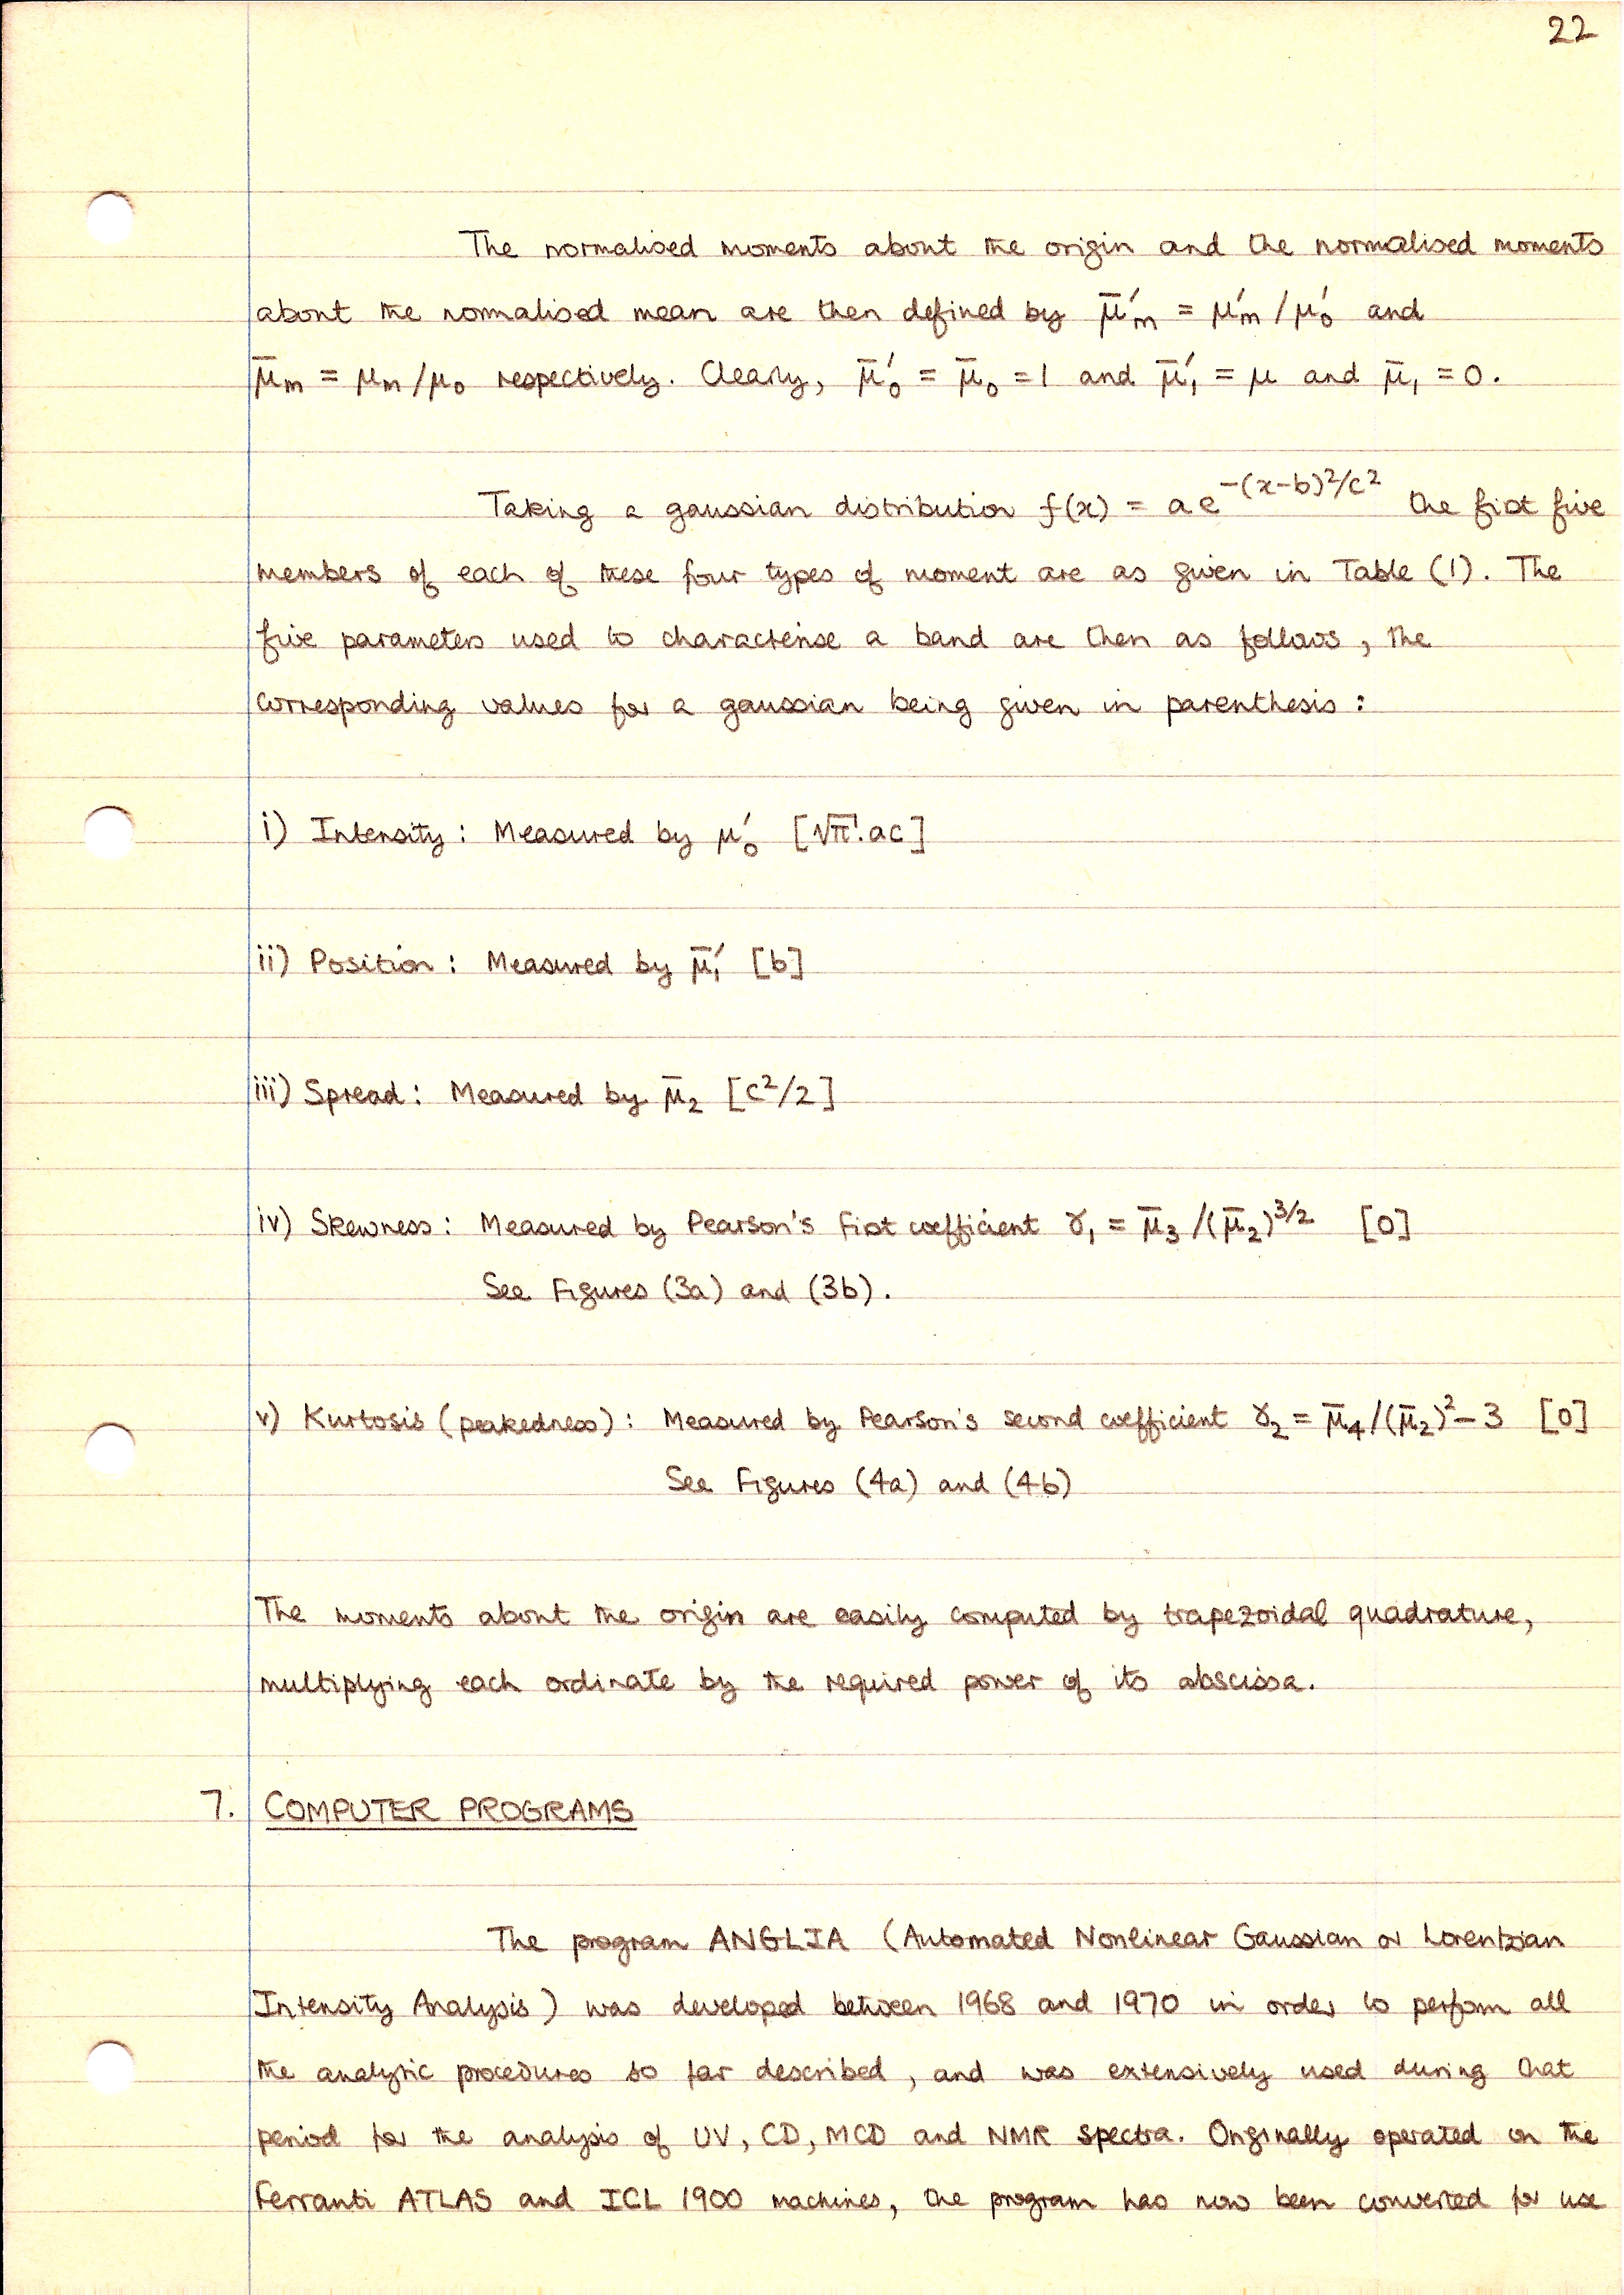 22
The normalised moments about the origin and the normalised moments
about the normalised mean are then defined by μ̄′m = μ′m / μ′0 and
μ̄m = μm / μ0 respectively. Clearly, μ̄′0 = μ̄0 = 1 and μ̄′1 = μ and μ̄1 = 0.
Taking a gaussian distribution f(x) = a e^-(x-b)²/c² the first five
members of each of these four types of moment are as given in Table (1). The
five parameters used to characterise a band are then as follows, the
corresponding values for a gaussian being given in parenthesis :
i) Intensity : Measured by μ′0 [√π.ac]
ii) Position : Measured by μ̄′1 [b]
iii) Spread : Measured by μ̄2 [c²/2]
iv) Skewness : Measured by Pearson's first coefficient γ1 = μ̄3 /(μ̄2)^3/2 [0]
See Figures (3a) and (3b).
v) Kurtosis (peakedness) : Measured by Pearson's second coefficient γ2 = μ̄4/(μ̄2)² - 3 [0]
See Figures (4a) and (4b)
The moments about the origin are easily computed by trapezoidal quadrature,
multiplying each ordinate by the required power of its abscissa.
7. COMPUTER PROGRAMS
The program ANGLIA (Automated Nonlinear Gaussian or Lorentzian
Intensity Analysis) was developed between 1968 and 1970 in order to perform all
the analytic procedures so far described, and was extensively used during that
period for the analysis of UV, CD, MCD and NMR spectra. Originally operated on the
Ferranti ATLAS and ICL 1900 machines, the program has now been converted for use